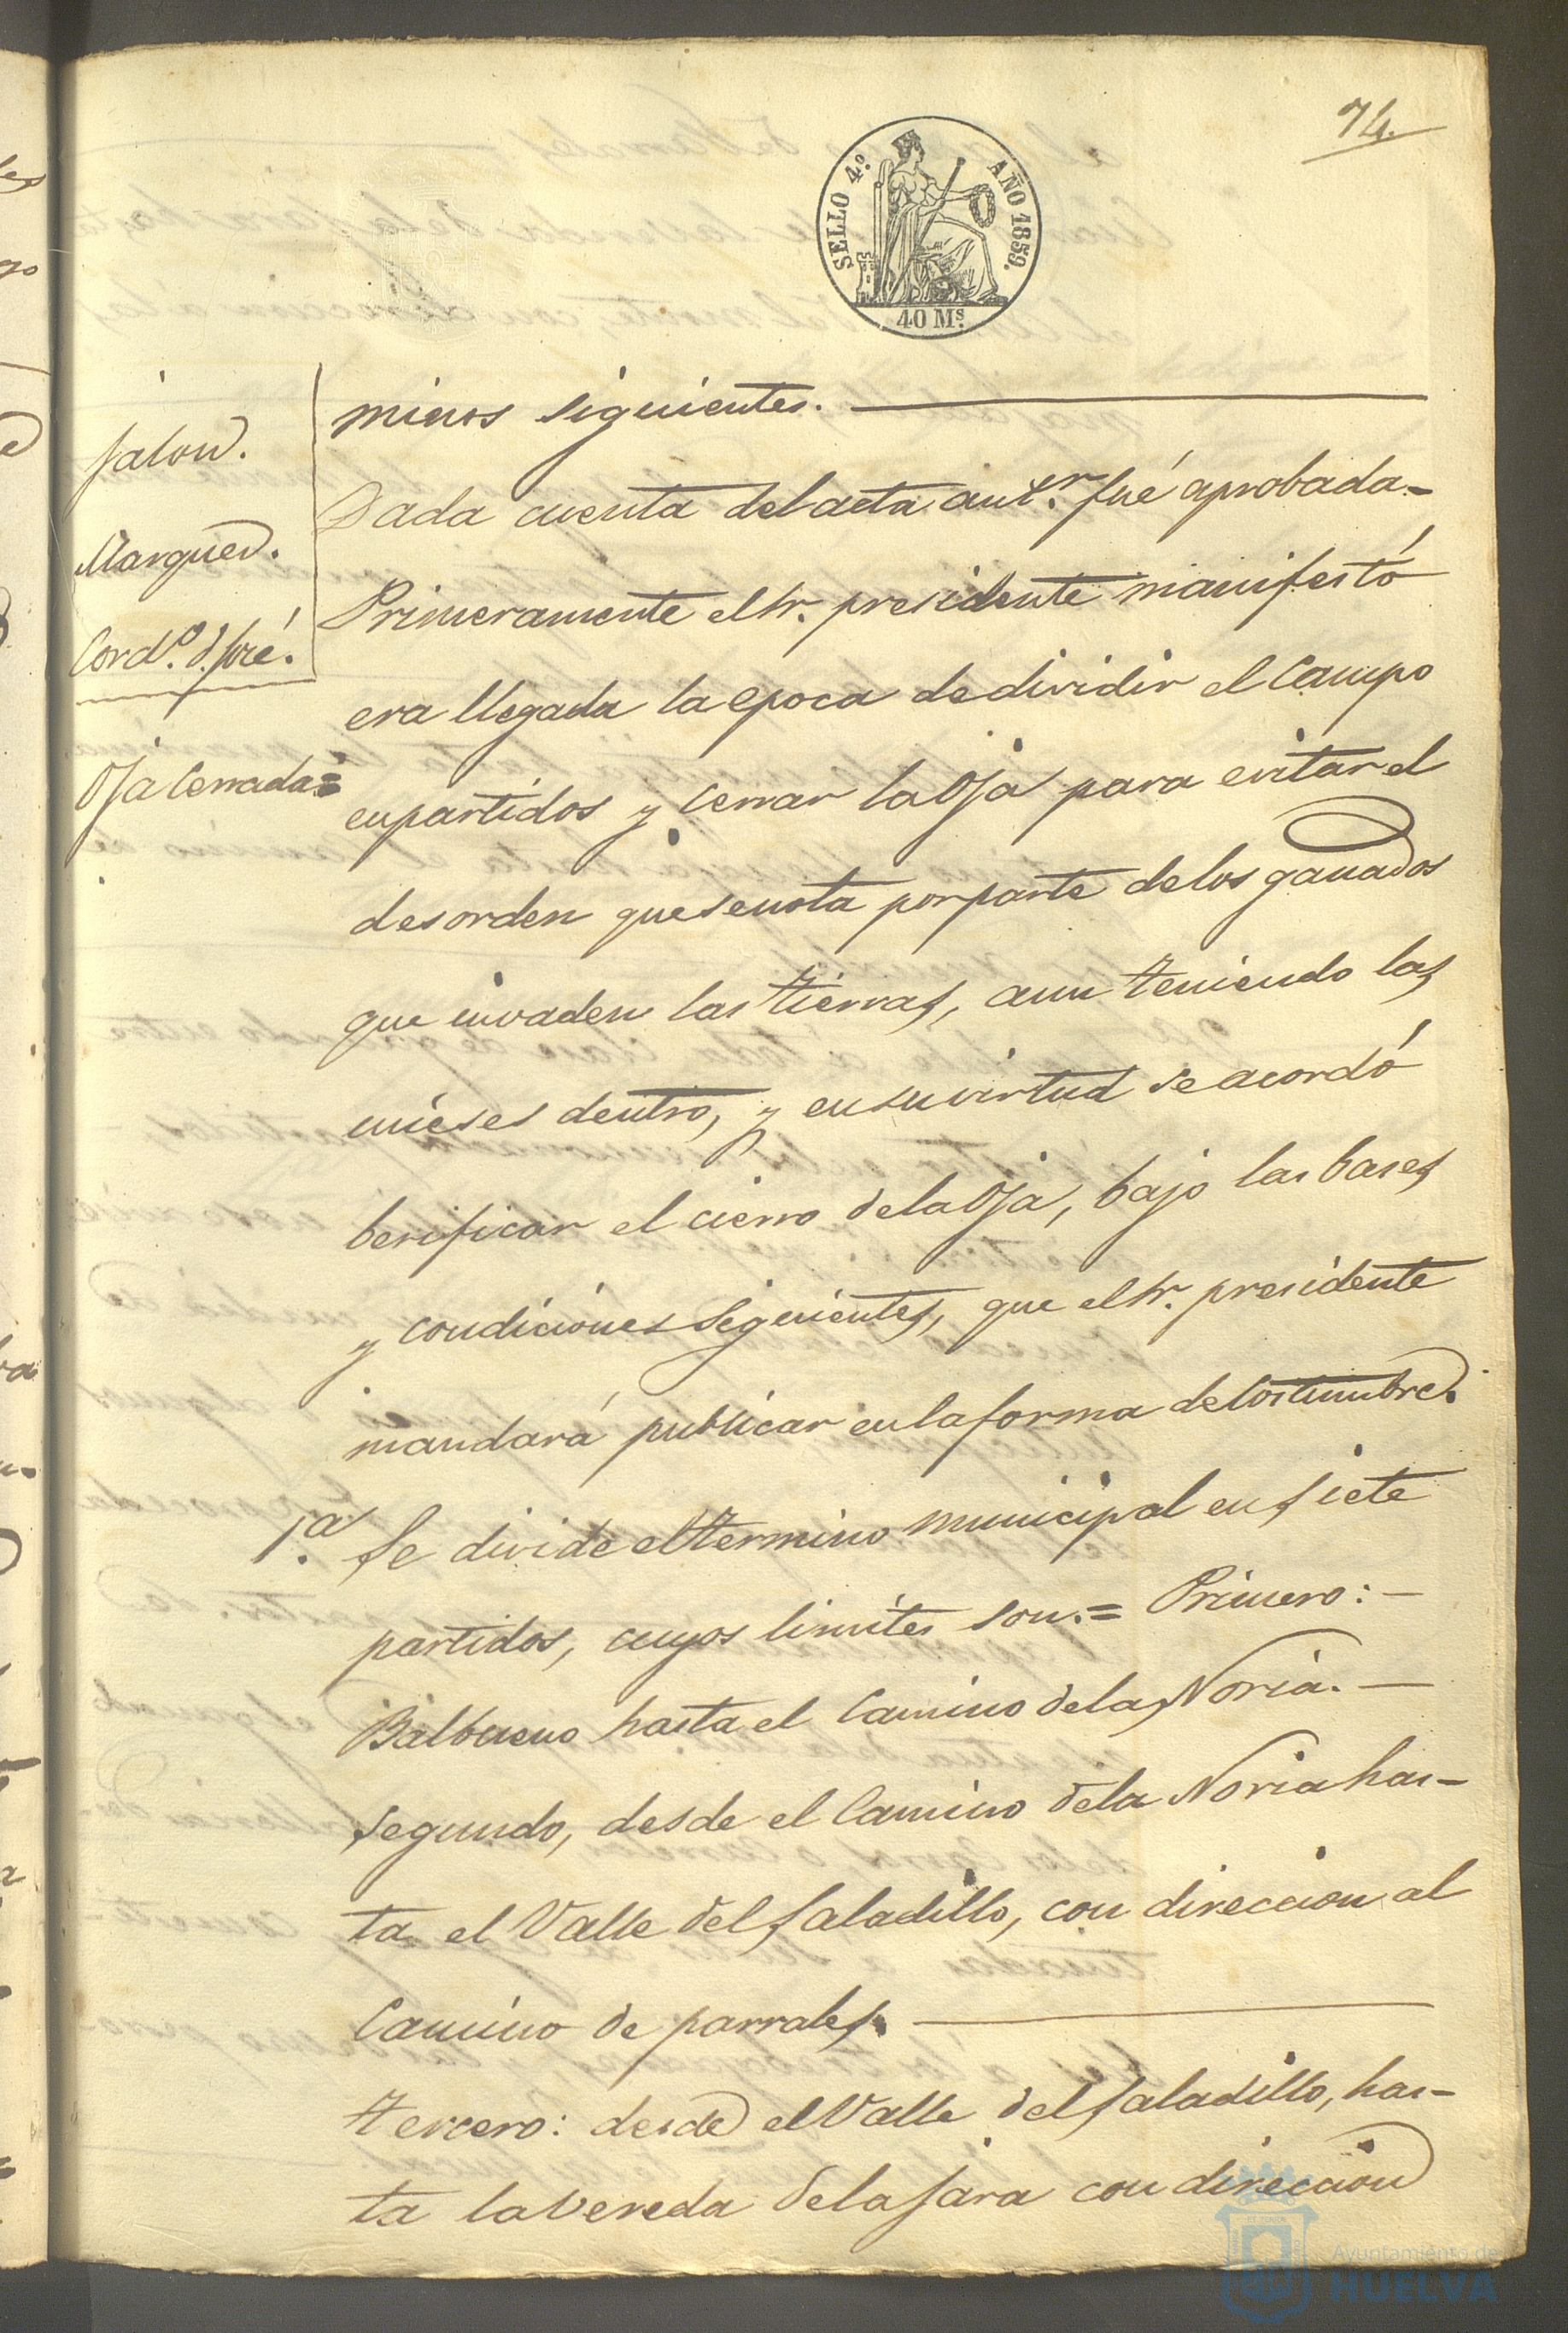 74.
SELLO 4.º AÑO 1859.
40 Ms.
Jalon.
Marquez.
Cord.º D. José.
Oja Cerrada=
minos siguientes.
Dada cuenta del acta ant.r fué aprobada.-
Primeramente el Sr. presidente manifestó
era llegada la epoca de dividir el Campo
en partidos y cerrar la Oja para evitar el
desorden que se nota por parte de los ganados
que invaden las tierras, aun teniendo las
mieses dentro, y en su virtud se acordó
berificar el cierro de la Oja, bajo las bases
y condiciones siguientes, que el Sr. presidente
mandará publicar en la forma de Costumbre.
1.ª Se divide el termino municipal en siete
partidos, cuyos limites son.= Primero:-
Balbueno hasta el Camino de la Noria.-
segundo, desde el Camino de la Noria has-
ta el Valle del Saladillo, con direccion al
Camino de parrales.
tercero: desde el Valle del Saladillo, has-
ta la Vereda de la Jara con direccion
Ayuntamiento de
HUELVA